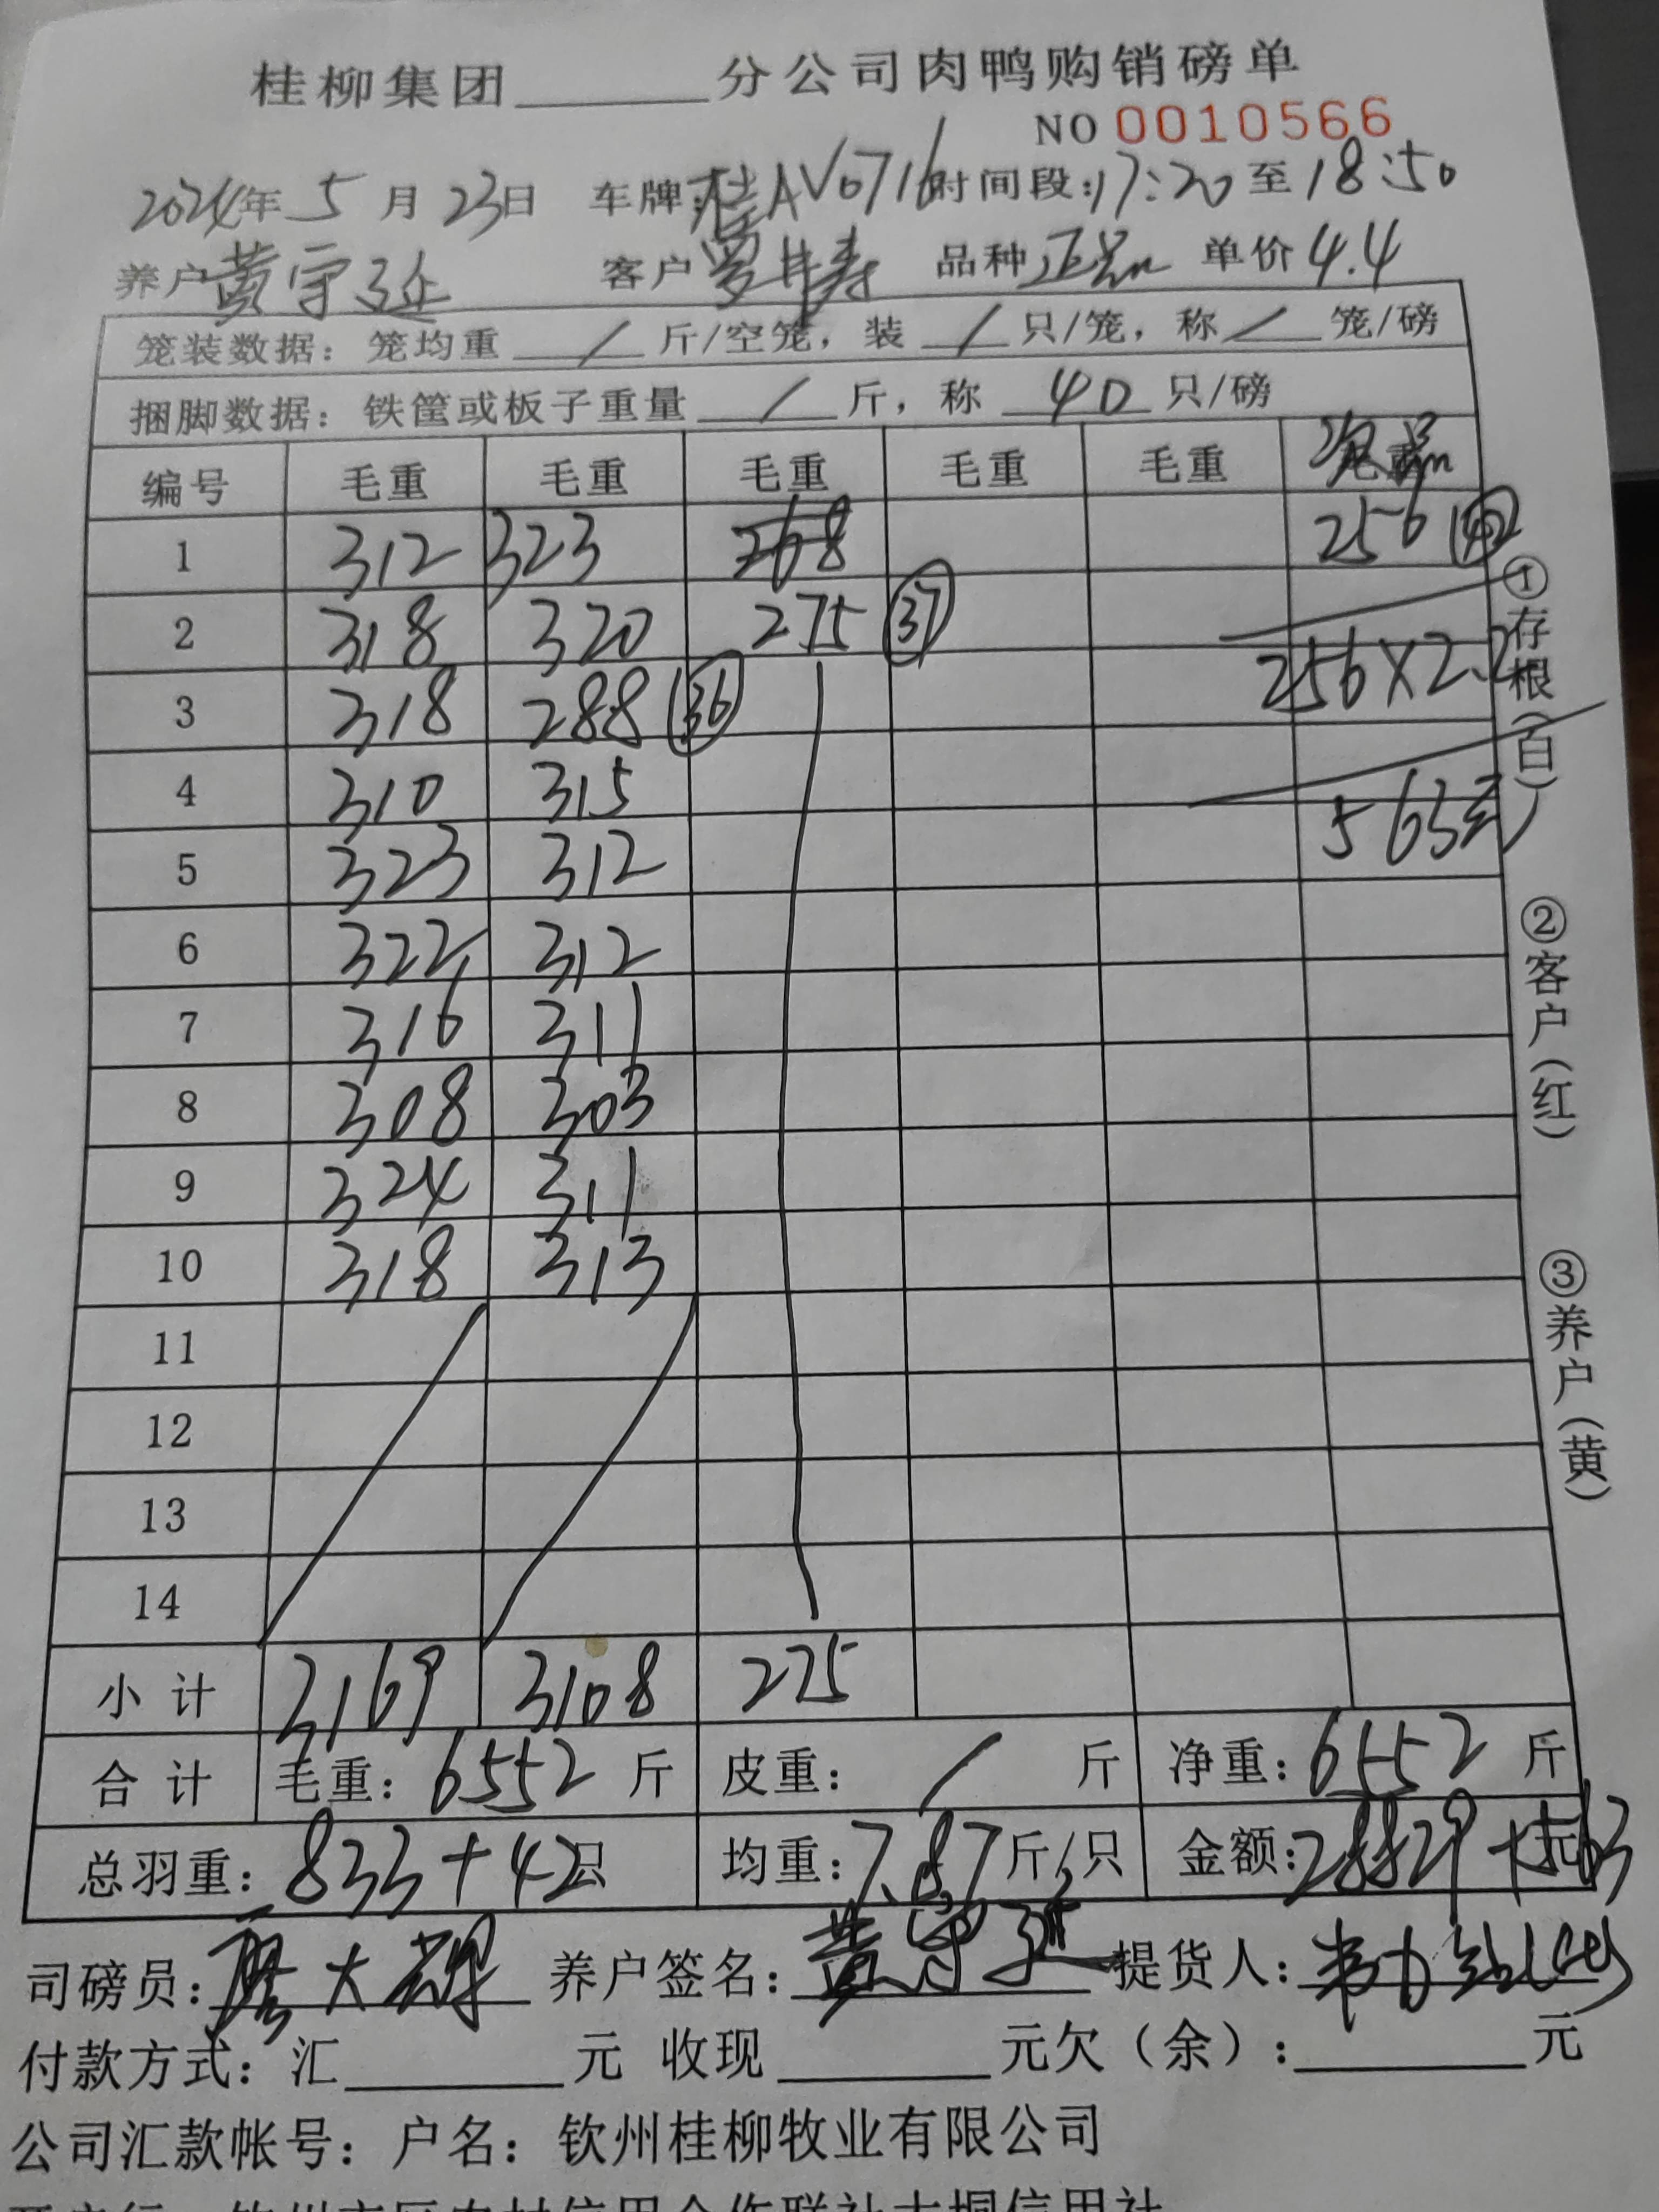 桂柳集团______分公司肉鸭购销磅单
NO 0010566
2024年 5 月 23日 车牌:桂AV0716 时间段:17:20 至 18:50
养户 黄守延 客户 罗井寿 品种 正品 单价 4.4
笼装数据：笼均重 / 斤/空笼，装 / 只/笼，称 / 笼/磅
捆脚数据：铁筐或板子重量 / 斤，称 40 只/磅
编号 毛重 毛重 毛重 毛重 毛重 次品
1 312 323 268 256 (42)
2 318 320 275 (37)
256×2.2
3 318 288 (36)
4 310 315
563元
5 323 312
6 322 312
7 316 311
8 308 303
9 324 311
10 318 313
11
12
13
14
小计 3169 3108 275
合计 毛重：6552 斤 皮重： / 斤 净重：6552 斤
总羽重：833+42只 均重：7.87斤/只 金额：28829+563元
司磅员： 养户签名：黄守延 提货人：
付款方式：汇______元 收现______元欠（余）：______元
公司汇款帐号：户名：钦州桂柳牧业有限公司
①存根(白) ②客户(红) ③养户(黄)